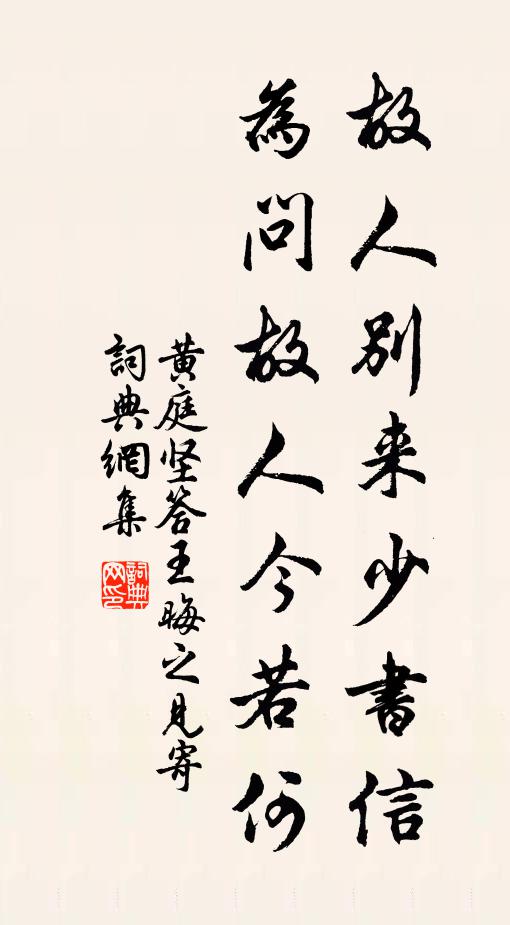 故人別来少書信
為問故人今若何
黄庭坚答王晦之見寄
詞典網集
詞典网印